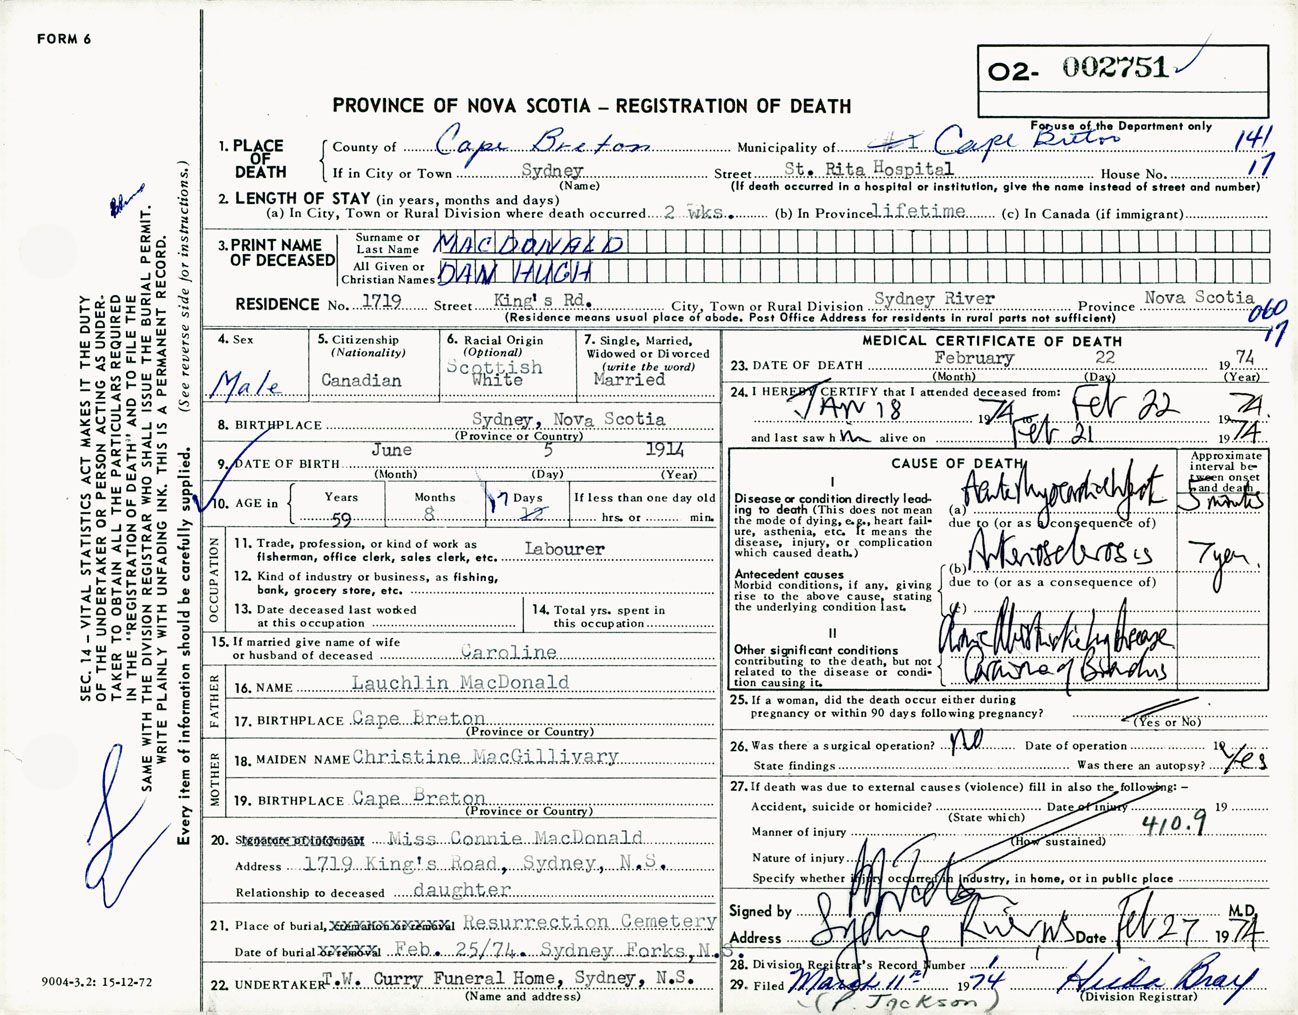 FORM 6
O2- 002751
PROVINCE OF NOVA SCOTIA – REGISTRATION OF DEATH
For use of the Department only
1. PLACE OF DEATH
County of Cape Breton Municipality of #1 Cape Breton 141
If in City or Town Sydney Street St. Rita Hospital House No. 17
(Name) (If death occurred in a hospital or institution, give the name instead of street and number)
2. LENGTH OF STAY (in years, months and days)
(a) In City, Town or Rural Division where death occurred 2 wks. (b) In Province lifetime (c) In Canada (if immigrant)
3. PRINT NAME OF DECEASED
Surname or Last Name MACDONALD
All Given or Christian Names DAN HUGH
RESIDENCE No. 1719 Street King's Rd. City, Town or Rural Division Sydney River Province Nova Scotia
(Residence means usual place of abode. Post Office Address for residents in rural parts not sufficient)
060
17
4. Sex
Male
5. Citizenship
(Nationality)
Canadian
6. Racial Origin
(Optional)
Scottish
White
7. Single, Married,
Widowed or Divorced
(write the word)
Married
8. BIRTHPLACE Sydney, Nova Scotia
(Province or Country)
9. DATE OF BIRTH June 5 1914
(Month) (Day) (Year)
10. AGE in
Years Months 17 Days If less than one day old
59 8 12 hrs. or min.
OCCUPATION
11. Trade, profession, or kind of work as
fisherman, office clerk, sales clerk, etc. Labourer
12. Kind of industry or business, as fishing,
bank, grocery store, etc.
13. Date deceased last worked
at this occupation
14. Total yrs. spent in
this occupation
15. If married give name of wife
or husband of deceased Caroline
FATHER
16. NAME Lauchlin MacDonald
17. BIRTHPLACE Cape Breton
(Province or Country)
MOTHER
18. MAIDEN NAME Christine MacGillivary
19. BIRTHPLACE Cape Breton
(Province or Country)
20. Signature of informant Miss Connie MacDonald
Address 1719 King's Road, Sydney, N.S.
Relationship to deceased daughter
21. Place of burial, cremation or removal Resurrection Cemetery
Date of burial or removal Feb. 25/74. Sydney Forks, N.S.
22. UNDERTAKER T.W. Curry Funeral Home, Sydney, N.S.
(Name and address)
MEDICAL CERTIFICATE OF DEATH
23. DATE OF DEATH February 22 1974
(Month) (Day) (Year)
24. I HEREBY CERTIFY that I attended deceased from:
JAN 18 1974 to Feb 22 1974.
and last saw him alive on Feb 21 1974
CAUSE OF DEATH
Approximate
interval be-
tween onset
and death
I
Disease or condition directly lead-
ing to death (This does not mean
the mode of dying, e.g., heart fail-
ure, asthenia, etc. It means the
disease, injury, or complication
which caused death.)
(a) Acute Myocardial Infarct 5 months
due to (or as a consequence of)
Antecedent causes
Morbid conditions, if any, giving
rise to the above cause, stating
the underlying condition last.
(b) Arteriosclerosis 7 years
due to (or as a consequence of)
(c)
II
Other significant conditions
contributing to the death, but not
related to the disease or condi-
tion causing it.
Chronic Obstructive Lung Disease
Carcinoma of Bronchus
25. If a woman, did the death occur either during
pregnancy or within 90 days following pregnancy?
(Yes or No)
26. Was there a surgical operation? no Date of operation 19
State findings Was there an autopsy? Yes
27. If death was due to external causes (violence) fill in also the following: –
Accident, suicide or homicide? Date of injury 19
(State which)
Manner of injury 410.9
(How sustained)
Nature of injury
Specify whether injury occurred in industry, in home, or in public place
Signed by M.D.
Address Sydney River NS Date Feb 27 1974
28. Division Registrar's Record Number 1
29. Filed March 11th 1974 Hilda Bray
(P. Jackson) (Division Registrar)
SEC. 14 – VITAL STATISTICS ACT MAKES IT THE DUTY
OF THE UNDERTAKER OR PERSON ACTING AS UNDER-
TAKER TO OBTAIN ALL THE PARTICULARS REQUIRED
IN THE "REGISTRATION OF DEATH" AND TO FILE THE
SAME WITH THE DIVISION REGISTRAR WHO SHALL ISSUE THE BURIAL PERMIT.
WRITE PLAINLY WITH UNFADING INK. THIS IS A PERMANENT RECORD.
Every item of information should be carefully supplied. (See reverse side for instructions.)
9004-3.2: 15-12-72